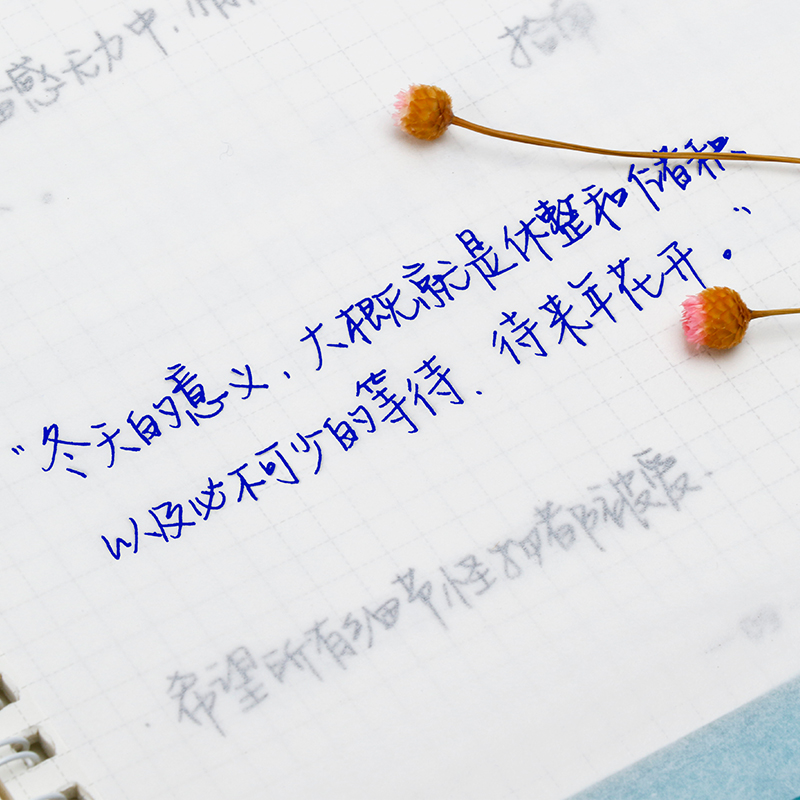 感无力中，
"冬天的意义，大概就是休整和储积、
以及必不可少的等待、待来年花开。"
希望所有细节怪物都被爱.
的